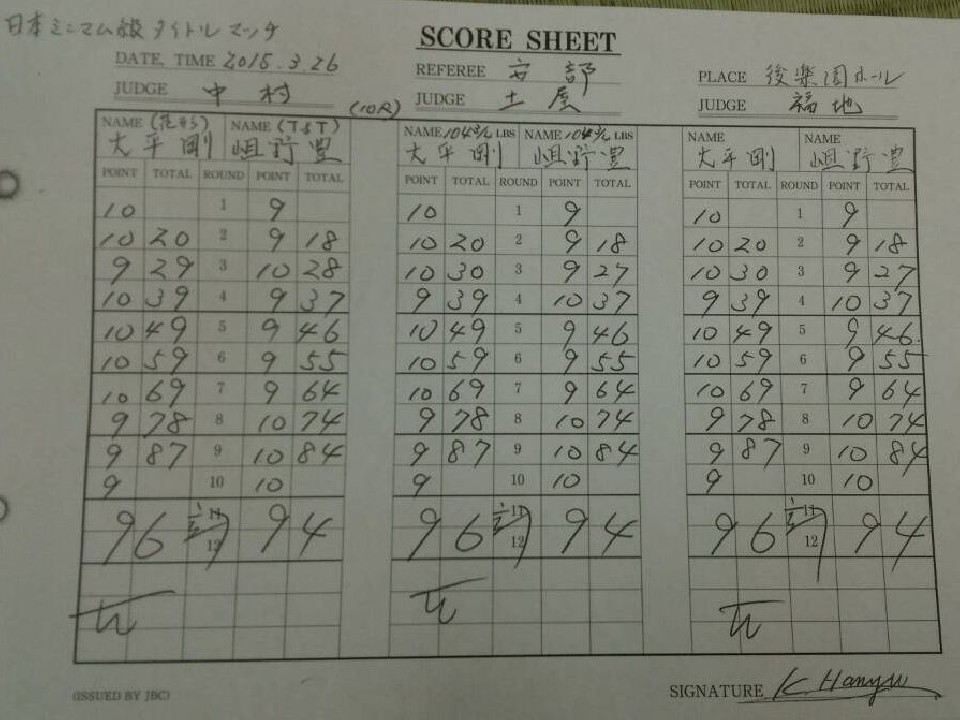 日本ミニマム級タイトルマッチ
SCORE SHEET
DATE, TIME 2015.3.26
REFEREE 安部
PLACE 後楽園ホール
JUDGE 中村
(10R)
JUDGE 土屋
JUDGE 福地
NAME (花形) NAME (T&T) NAME 104 3/4 LBS NAME 104 3/4 LBS NAME NAME
大平剛 岨野豊 大平剛 岨野豊 大平剛 岨野豊
POINT TOTAL ROUND POINT TOTAL POINT TOTAL ROUND POINT TOTAL POINT TOTAL ROUND POINT TOTAL
10 1 9 10 1 9 10 1 9
10 20 2 9 18 10 20 2 9 18 10 20 2 9 18
9 29 3 10 28 10 30 3 9 27 10 30 3 9 27
10 39 4 9 37 9 39 4 10 37 9 39 4 10 37
10 49 5 9 46 10 49 5 9 46 10 49 5 9 46
10 59 6 9 55 10 59 6 9 55 10 59 6 9 55
10 69 7 9 64 10 69 7 9 64 10 69 7 9 64
9 78 8 10 74 9 78 8 10 74 9 78 8 10 74
9 87 9 10 84 9 87 9 10 84 9 87 9 10 84
9 10 10 9 10 10 9 10 10
11 11 11
96 討 94 96 討 94 96 討 94
12 12 12
(ISSUED BY JBC)
SIGNATURE K Hanyu